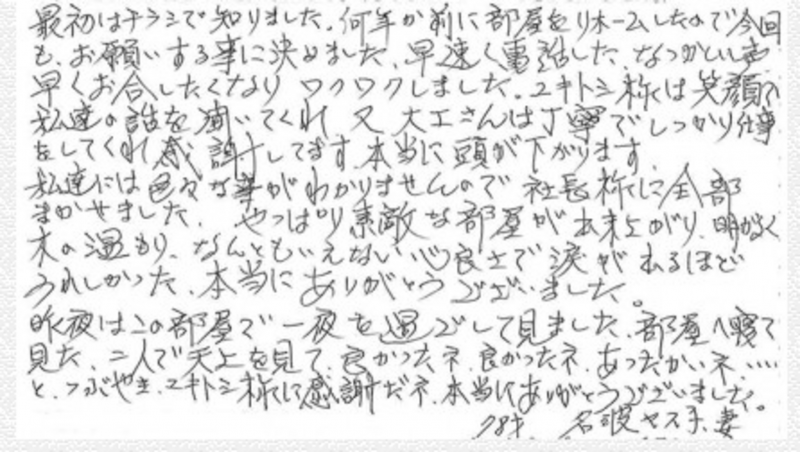 最初はチラシで知りました。何年か前に部屋をリホームしたので今回
も、お願いする事に決めました。早速く電話した、なつかしい声
早くお合したくなり ワクワクしました。ユキトシ様は笑顔で
私達の話を聞いてくれ 又 大工さんは丁寧でしっかり仕事
をしてくれ感謝してます。本当に頭が下がります。
私達には色々な事がわかりませんので 社長様に全部
まかせました。やっぱり素敵な部屋が出来上がり、明かるく
木の温もり、なんともいえない心良さで涙が出るほど
うれしかった、本当にありがとうございました。
昨夜はこの部屋で一夜を過ごして見ました、部屋へ寝て
見た、二人で天上を見て、良かったネ、良かったネ、あったかいネ、……
と、つぶやき、ユキトシ様に感謝だネ、本当にありがとうございました。
ヤス子、妻